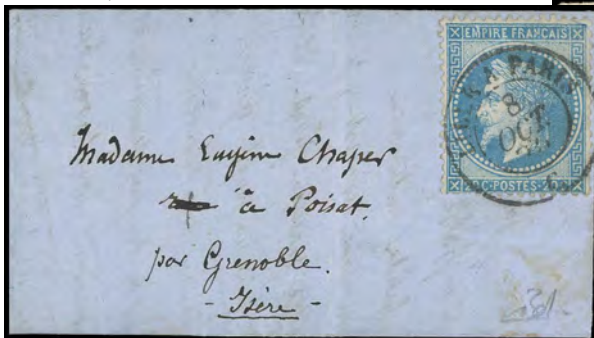 EMPIRE FRANCAIS
A PARIS
8
OCT
20C·POSTES·20C
Madame Eugène Chaper
à Poisat.
par Grenoble.
- Isère -